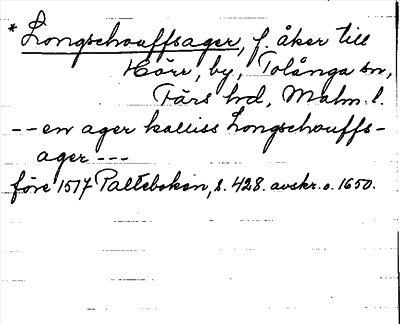 * Longschouffsager, f. åker till
Hörr, by, Tolånga sn,
Färs hd, Malm. l.
-- en ager kalliss Longschouffs-
ager ---
före 1517 Palteboken, s. 428. avskr. o. 1650.